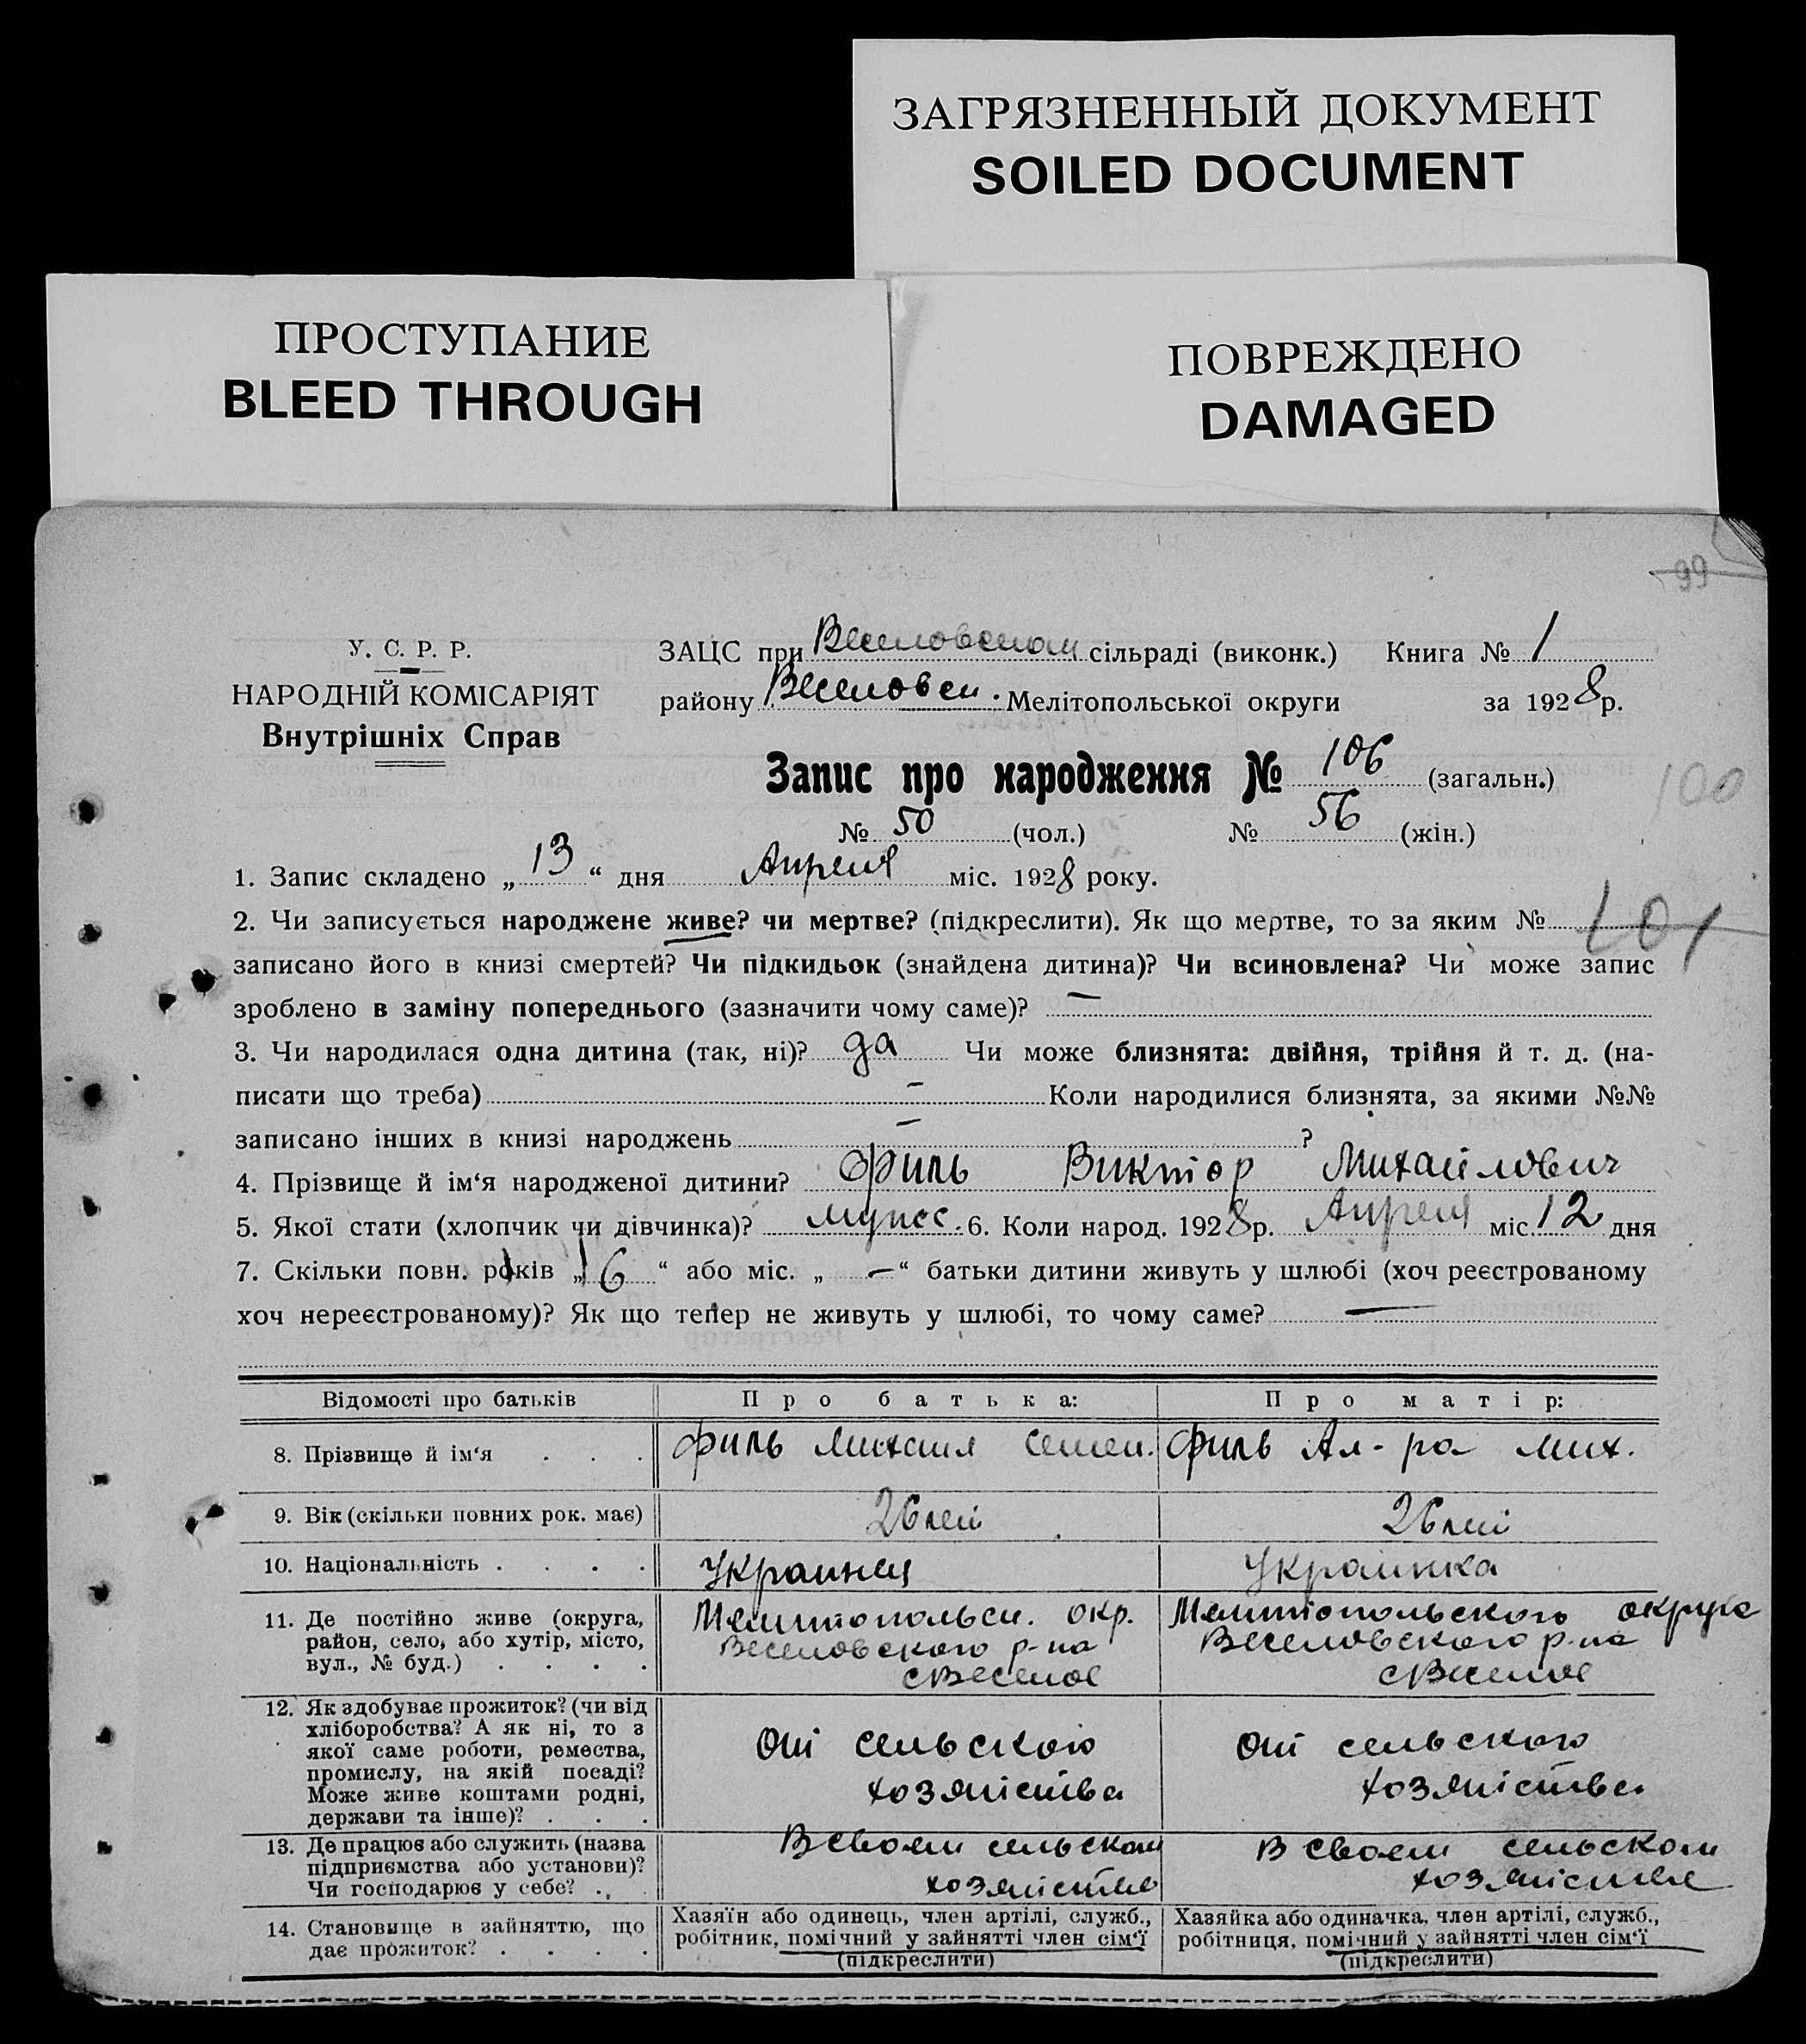 ЗАГРЯЗНЕННЫЙ ДОКУМЕНТ
SOILED DOCUMENT
ПРОСТУПАНИЕ
BLEED THROUGH
ПОВРЕЖДЕНО
DAMAGED
99
У. С. Р. Р.
НАРОДНІЙ КОМІСАРІЯТ
Внутрішніх Справ
ЗАЦС при Веселовском сільраді (виконк.) Книга № 1
району Веселовск. Мелітопольської округи за 1928 р.
Запис про народження № 106 (загальн.)
100
№ 50 (чол.) № 56 (жін.)
1. Запис складено „13“ дня Апреля міс. 1928 року.
2. Чи записується народжене живе? чи мертве? (підкреслити). Як що мертве, то за яким №
101
записано його в книзі смертей? Чи підкидьок (знайдена дитина)? Чи всиновлена? Чи може запис
зроблено в заміну попереднього (зазначити чому саме)? —
3. Чи народилася одна дитина (так, ні)? да Чи може близнята: двійня, трійня й т. д. (на-
писати що треба) — Коли народилися близнята, за якими №№
записано інших в книзі народжень — ?
4. Прізвище й ім‘я народженої дитини? Филь Виктор Михайлович
5. Якої стати (хлопчик чи дівчинка)? мужес. 6. Коли народ. 1928 р. Апреля міс. 12 дня
7. Скільки повн. років „6“ або міс. „—“ батьки дитини живуть у шлюбі (хоч реєстрованому
хоч нереєстрованому)? Як що тепер не живуть у шлюбі, то чому саме? —
Відомості про батьків Про батька: Про матір:
8. Прізвище й ім‘я . . . Филь Михаил Семен. Филь Ал-ра Мих.
9. Вік (скільки повних рок. має) 26 лет 26 лет
10. Національність . . . . Украинец Украинка
11. Де постійно живе (округа,
район, село, або хутір, місто,
вул., № буд.) . . . .
Мелитопольск. окр.
Веселовского р-на
с Веселое
Мелитопольского округа
Веселовского р-на
с Веселое
12. Як здобуває прожиток? (чи від
хліборобства? А як ні, то з
якої саме роботи, ремества,
промислу, на якій посаді?
Може живе коштами родні,
держави та інше)? . . .
От сельского
хозяйства
От сельского
хозяйства
13. Де працює або служить (назва
підприємства або установи)?
Чи господарює у себе? . .
В своем сельском
хозяйстве
В своем сельском
хозяйстве
14. Становище в зайняттю, що
дає прожиток? . . . .
Хазяїн або одинець, член артілі, служб.,
робітник, помічний у зайнятті член сім‘ї
(підкреслити)
Хазяйка або одиначка, член артілі, служб.,
робітниця, помічний у зайнятті член сім‘ї
(підкреслити)